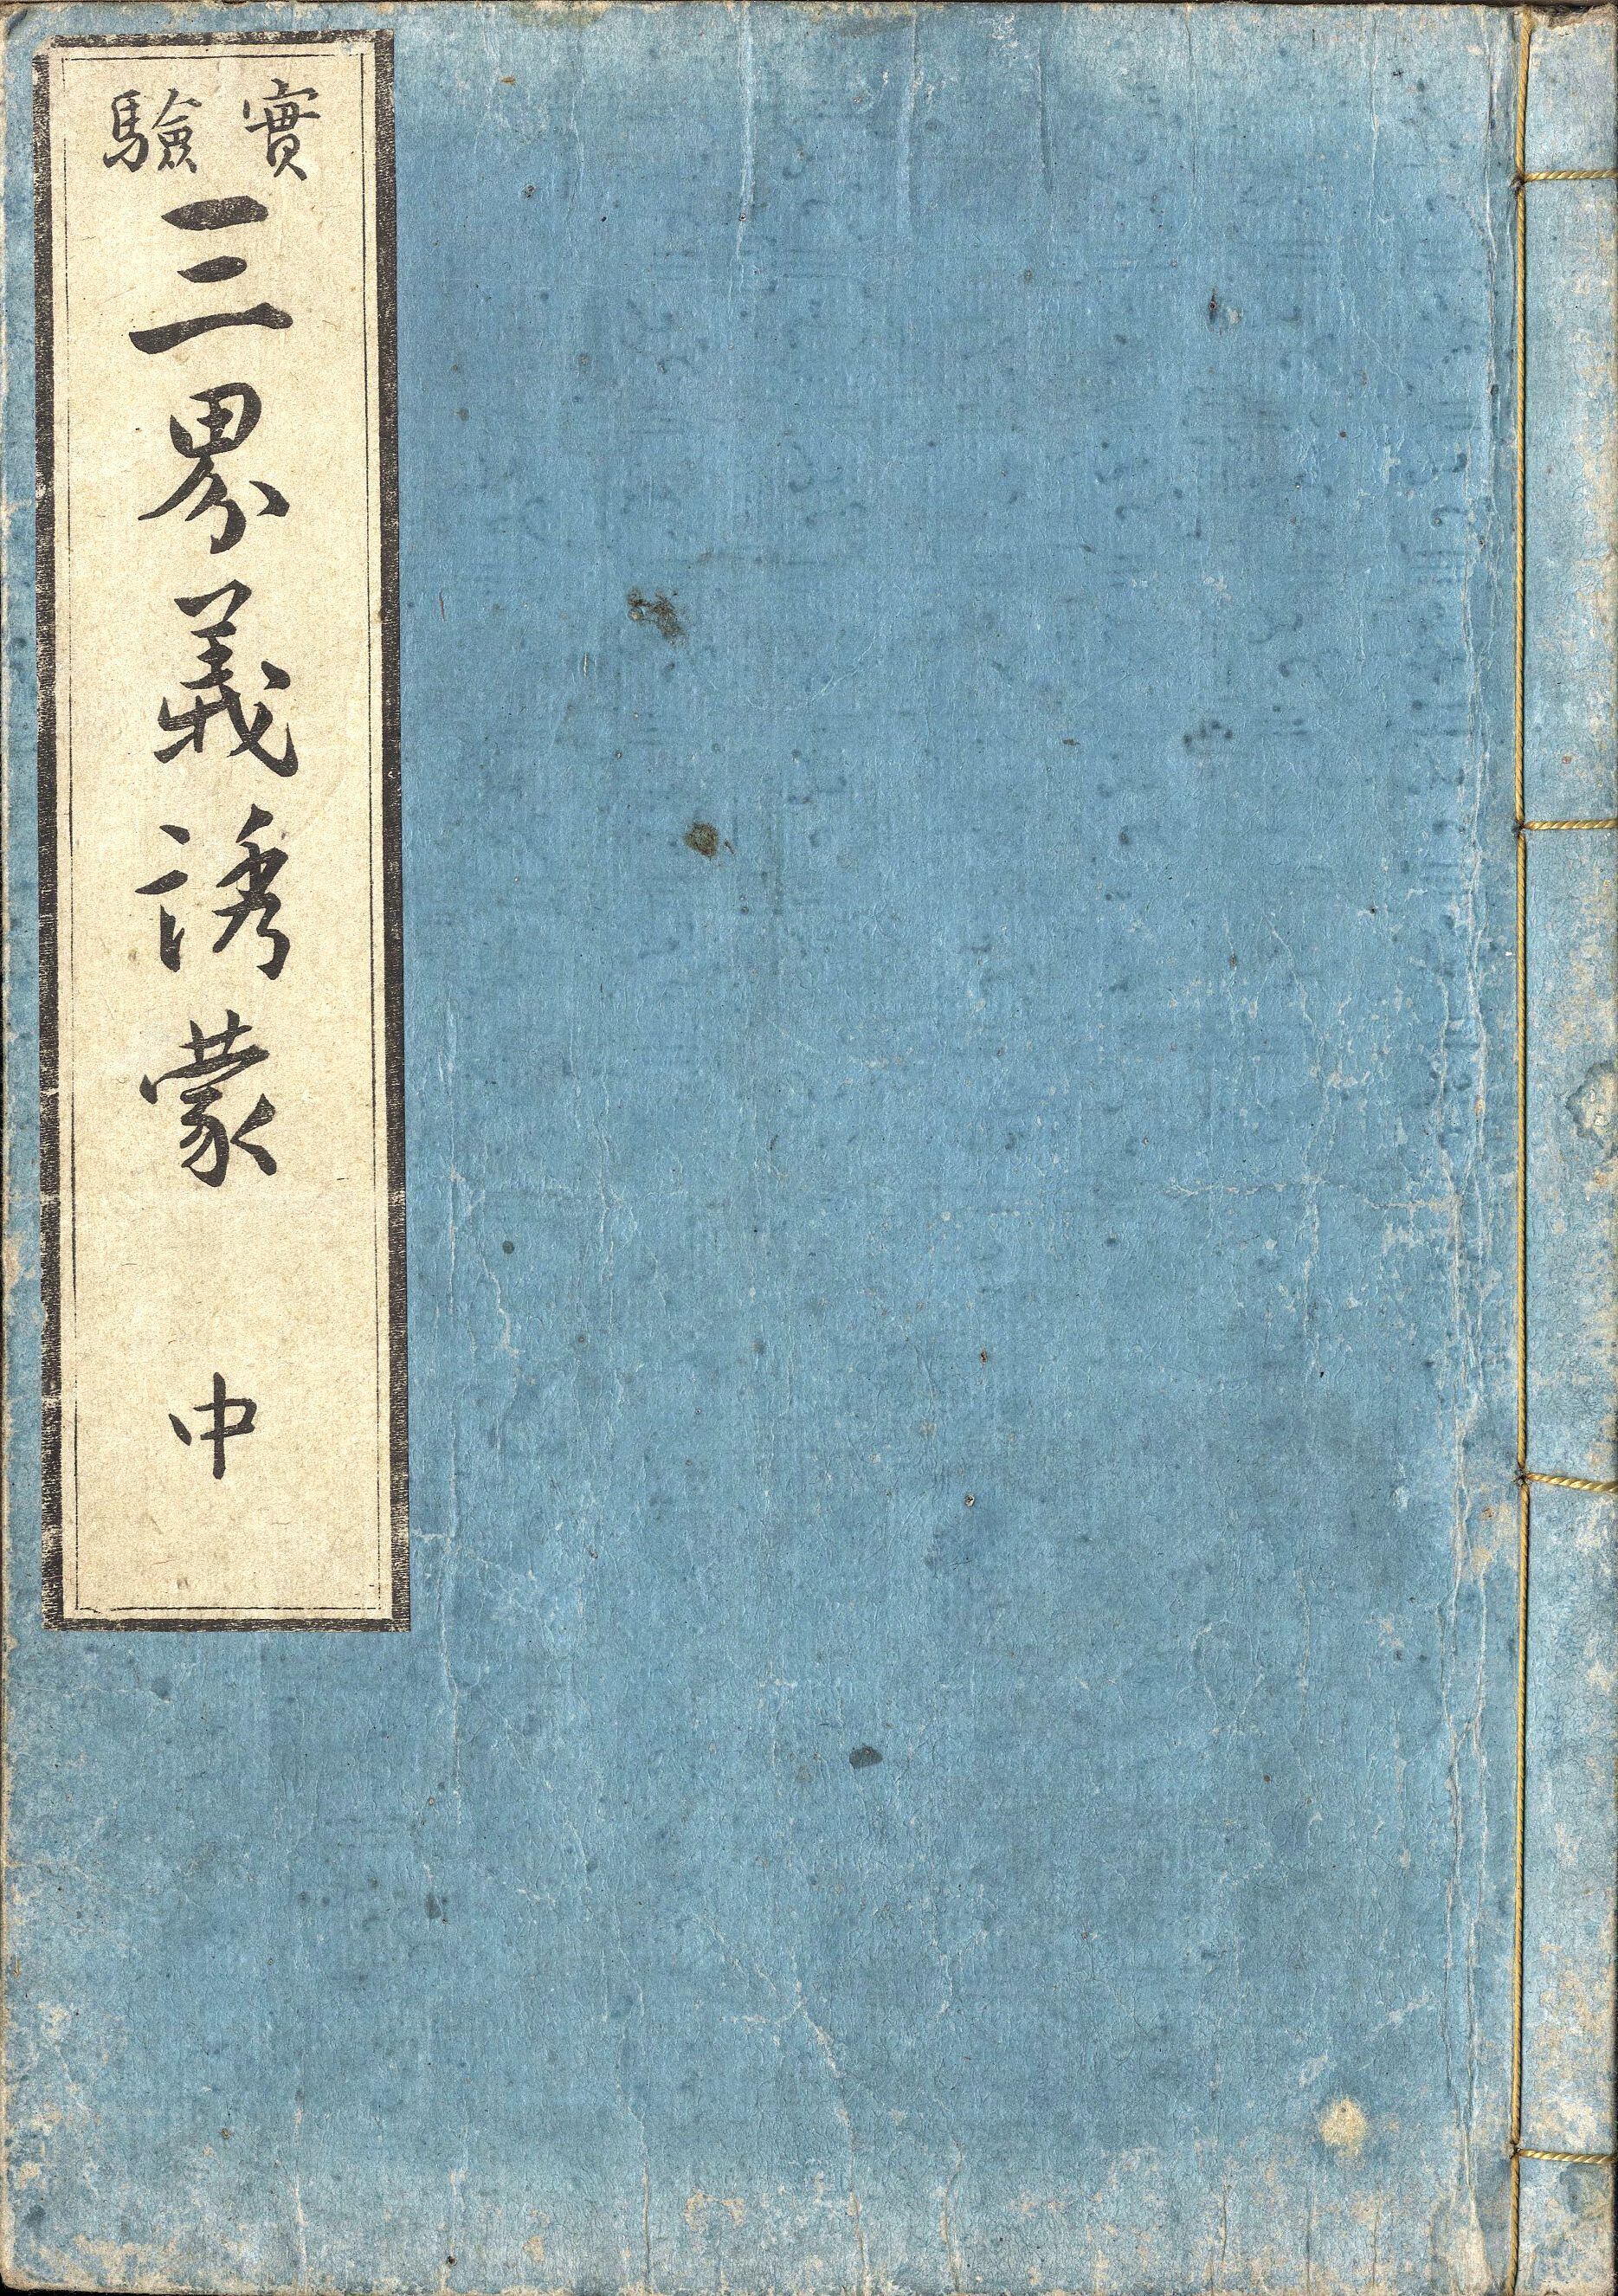 實驗
三界義誘蒙
中